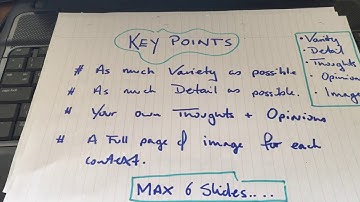 KEY POINTS
# As much Variety as possible
# As much Detail as possible.
# Your own Thoughts + Opinions
# A Full page of image for each
context.
MAX 6 Slides....
• Variety
• Detail
• Thoughts
• Opinion
• Image